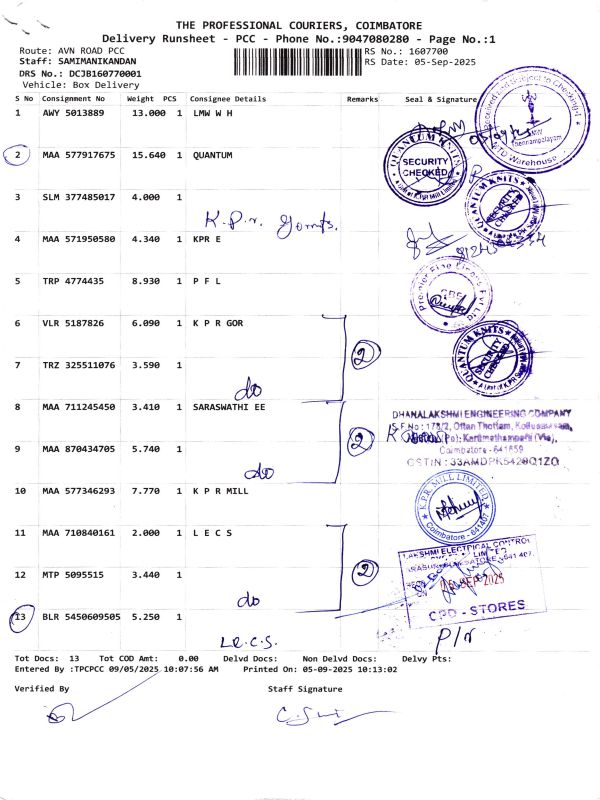 THE PROFESSIONAL COURIERS, COIMBATORE
Delivery Runsheet - PCC - Phone No.:9047080280 - Page No.:1
Route: AVN ROAD PCC RS No.: 1607700
Staff: SAMIMANIKANDAN RS Date: 05-Sep-2025
DRS No.: DCJB160770001
Vehicle: Box Delivery
S No Consignment No Weight PCS Consignee Details Remarks Seal & Signature
1 AWY 5013889 13.000 1 LMW W H
Received and Subject to Checking
LMW
Thennampalayam
MTD Warehouse
2 MAA 577917675 15.640 1 QUANTUM
QUANTUM KNITS
SECURITY
CHECKED
3 SLM 377485017 4.000 1
K.P.r. Gormts.
QUANTUM KNITS
SECURITY
CHECKED
4 MAA 571950580 4.340 1 KPR E
5 TRP 4774435 8.930 1 P F L
6 VLR 5187826 6.090 1 K P R GOR
2
QUANTUM KNITS
SECURITY
CHECKED
7 TRZ 325511076 3.590 1
do
8 MAA 711245450 3.410 1 SARASWATHI EE
2
DHANALAKSHMI ENGINEERING COMPANY
S.F No: 178/2, Ottan Thottam,
(Po), Karumathampatti (Via),
Coimbatore - 641659
GSTIN: 33AMDPK5429Q1ZQ
9 MAA 870434705 5.740 1
do
10 MAA 577346293 7.770 1 K P R MILL
K.P.R. MILL LIMITED
Coimbatore - 641407
11 MAA 710840161 2.000 1 L E C S
2
LAKSHMI ELECTRICAL CONTROL
LIMITED
COIMBATORE - 641 407.
SEP 2025
CPD - STORES
12 MTP 5095515 3.440 1
do
13 BLR 5450609505 5.250 1
L.E.C.S.
P/r
Tot Docs: 13 Tot COD Amt: 0.00 Delvd Docs: Non Delvd Docs: Delvy Pts:
Entered By :TPCPCC 09/05/2025 10:07:56 AM Printed On: 05-09-2025 10:13:02
Verified By Staff Signature